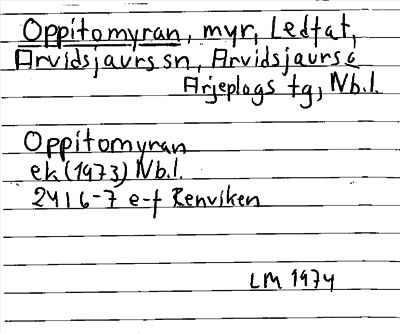 Oppitomyran, myr, Ledfat,
Arvidsjaurs sn, Arvidsjaurs &
Arjeplogs tg, Nb.l.
Oppitomyran
ek (1973) Nb.l.
24 I 6-7 e-f Renviken
LM 1974